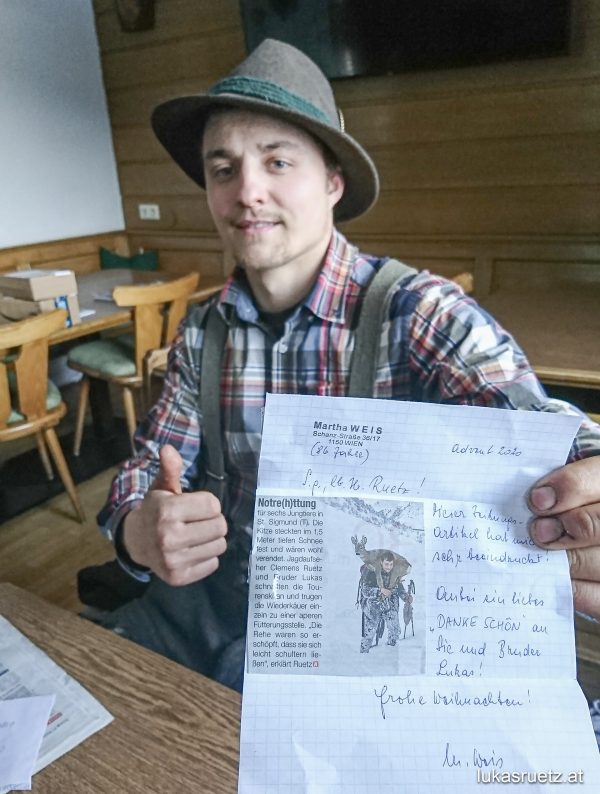 Martha WEIS
Schanz-Straße 36/17
1150 WIEN
(86 Jahre)
Advent 2020
S.g., lb. H. Ruetz!
Notre(h)ttung
für sechs Jungtiere in
St. Sigmund (T). Die
Kitze steckten im 1,5
Meter tiefen Schnee
fest und wären wohl
verendet. Jagdaufse-
her Clemens Ruetz
und Bruder Lukas
schnallten sich die Tou-
renski an und trugen
die Wiederkäuer ein-
zeln zu einer aperen
Fütterungsstelle. „Die
Rehe waren so er-
schöpft, dass sie sich
leicht schultern lie-
ßen“, erklärt Ruetz
Dieser Zeitungs-
Artikel hat mich
sehr beeindruckt!
Anbei ein liebes
„DANKE SCHÖN“ an
Sie und Bruder
Lukas!
Frohe Weihnachten!
M. Weis
lukasruetz.at